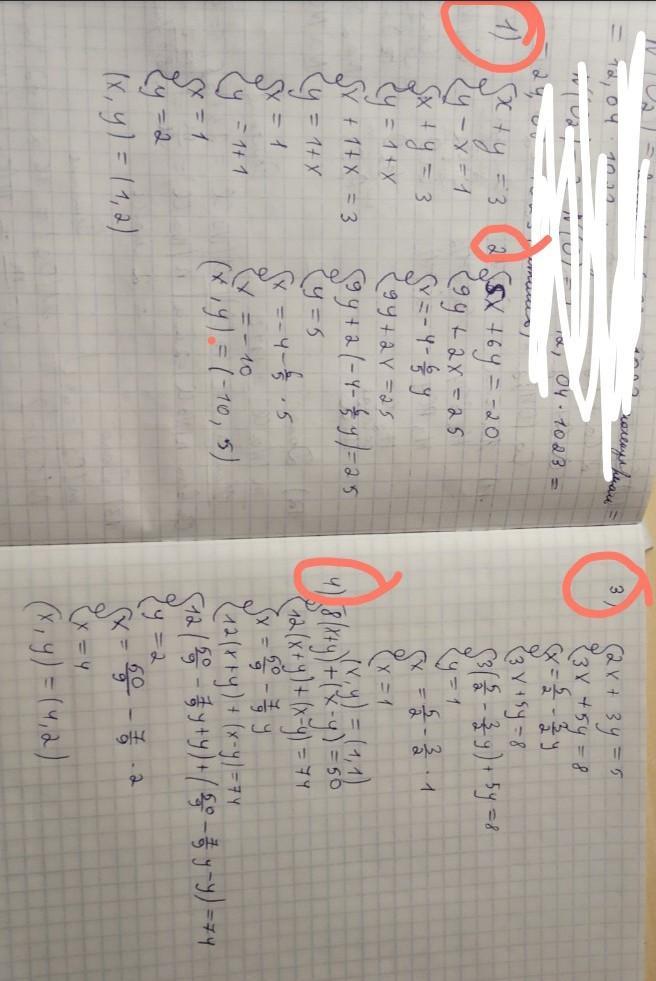 = 12,04 · 1023
04 · 1023 =
1)
{x + y = 3
{y - x = 1
{x + y = 3
{y = 1 + x
{x + 1 + x = 3
{y = 1 + x
{x = 1
{y = 1 + 1
{x = 1
{y = 2
(x, y) = (1, 2)
2
{5x + 6y = -20
{9y + 2x = 25
{x = -4 - 6/5 y
{9y + 2x = 25
{9y + 2(-4 - 6/5 y) = 25
{y = 5
{x = -4 - 6/5 · 5
{x = -10
(x, y) = (-10, 5)
3)
{2x + 3y = 5
{3x + 5y = 8
{x = 5/2 - 3/2 y
{3x + 5y = 8
{3(5/2 - 3/2 y) + 5y = 8
{y = 1
{x = 5/2 - 3/2 · 1
{x = 1
(x, y) = (1, 1)
4)
{8(x+y) + (x-y) = 50
{12(x+y) + (x-y) = 74
{x = 50/9 - 7/9 y
{12(x+y) + (x-y) = 74
{12(50/9 - 7/9 y + y) + (50/9 - 7/9 y - y) = 74
{y = 2
{x = 50/9 - 7/9 · 2
{x = 4
(x, y) = (4, 2)